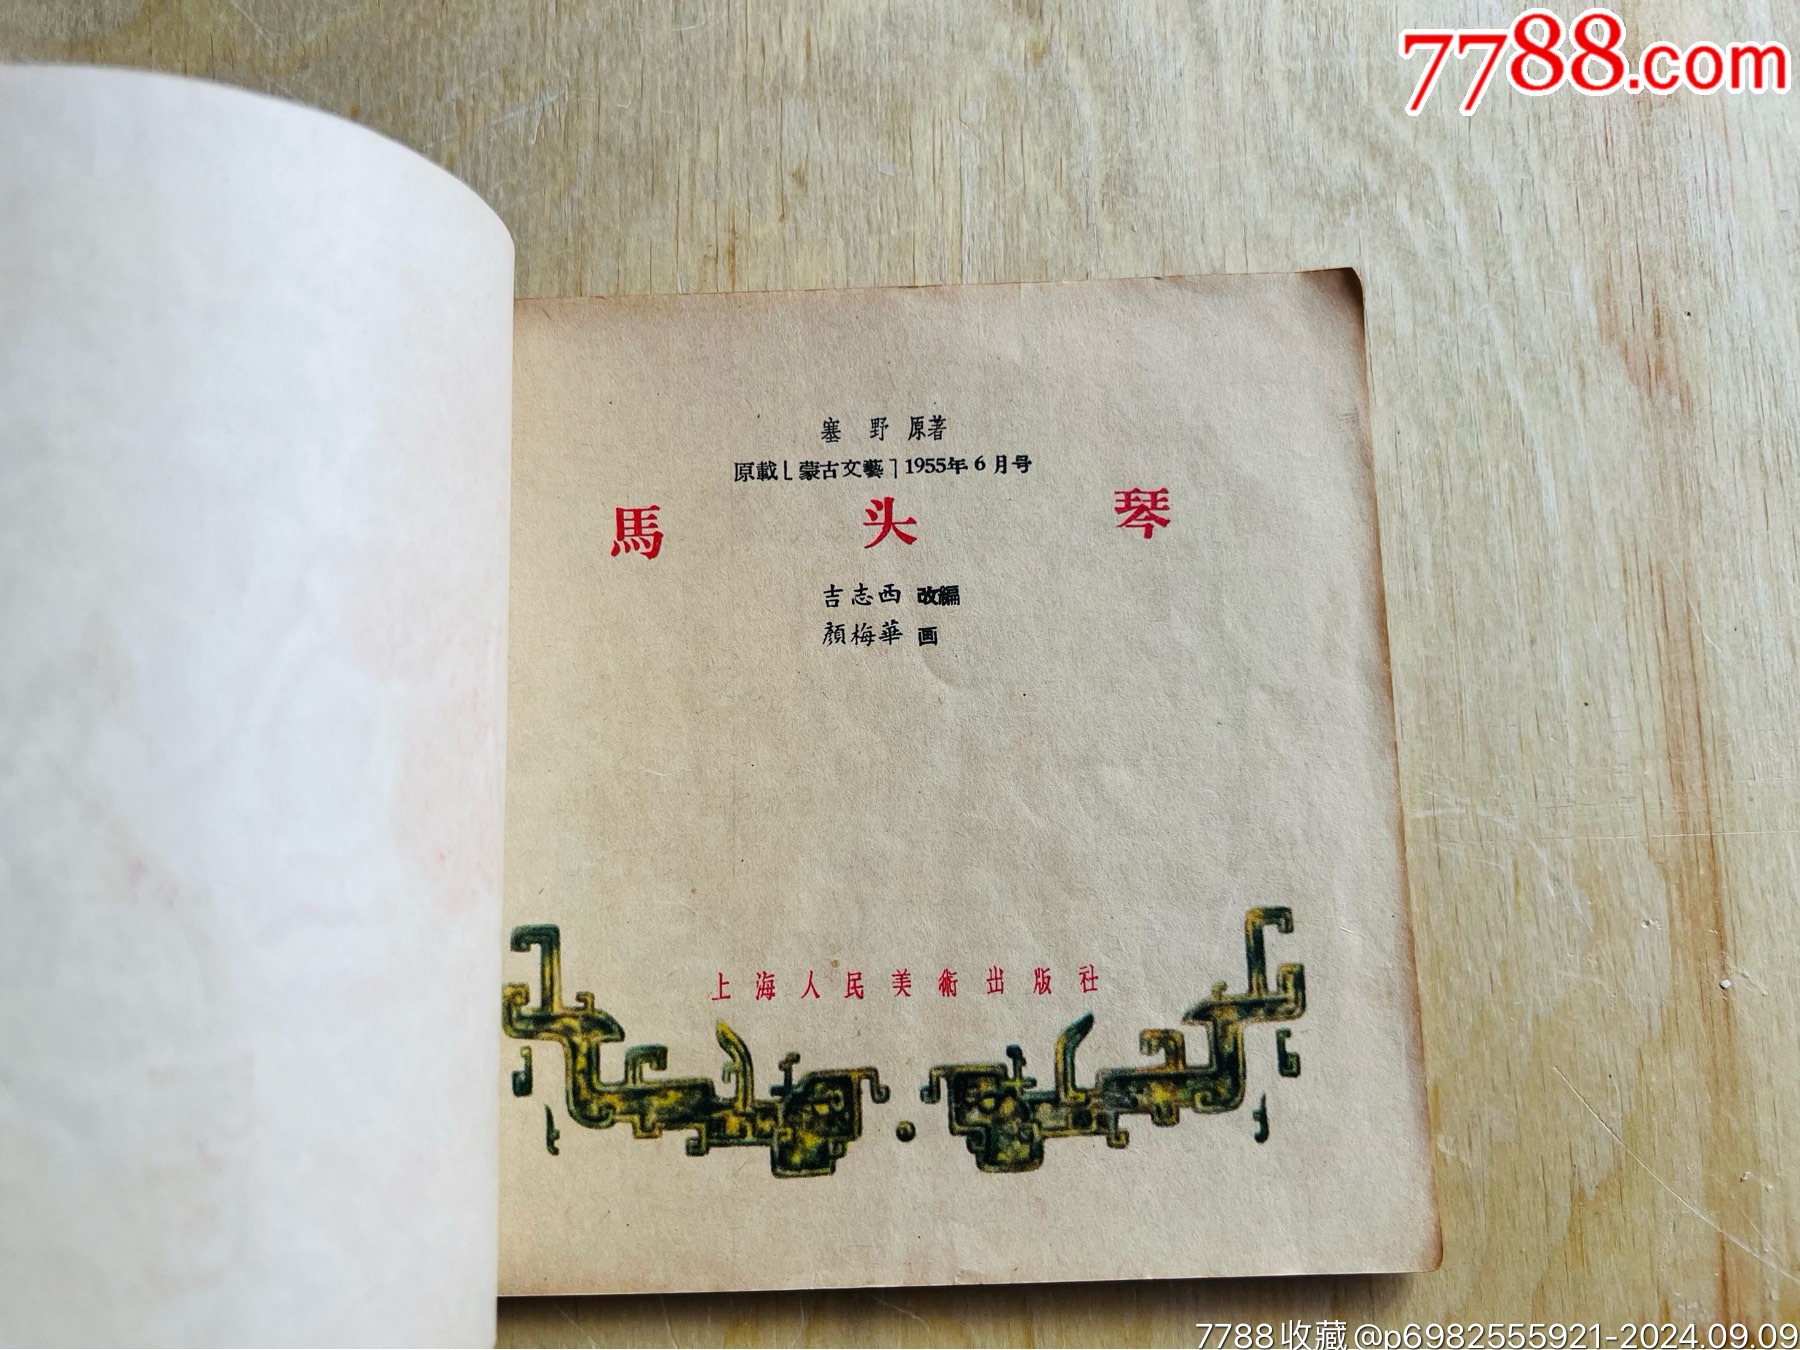 7788.com
塞 野 原著
原載「蒙古文藝」1955年6月号
馬头琴
吉志西 改編
顏梅華 画
上海人民美術出版社
7788收藏@p6982555921-2024.09.09